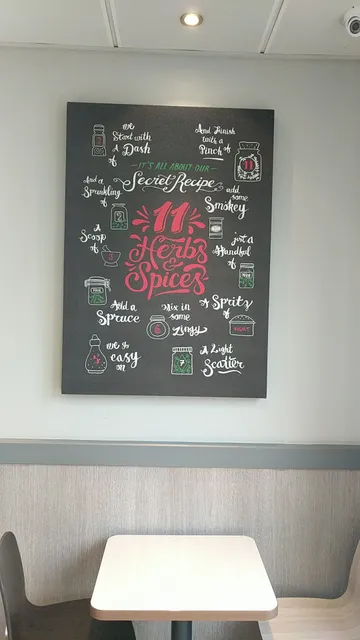 we
Start with
a Dash
of
And Finish
with a
Pinch of
11
IT'S ALL ABOUT OUR
Secret Recipe
And a
Sprinkling
of
2
add
some
Smokey
11
Herbs
&
Spices
A
Scoop
of
3
just a
Handful
of
Add a
Spruce
Mix in
some
Zingy
6
A Spritz
of
EIGHT
we go
easy
on
5
7
A Light
Scatter